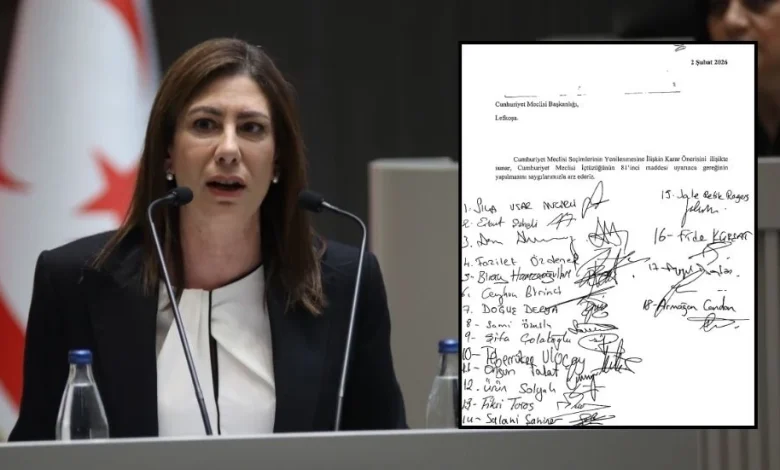 2 Şubat 2026
Cumhuriyet Meclisi Başkanlığı,
Lefkoşa.
Cumhuriyet Meclisi Seçimlerinin Yenilenmesine İlişkin Karar Önerisini ilişikte
sunar, Cumhuriyet Meclisi İçtüzüğünün 81'inci maddesi uyarınca gereğinin
yapılmasını saygılarımızla arz ederiz.
1. Sıla USAR İNCİRLİ
2-
3.
4. Fazilet Özdenefe
5- Biray Hamzaoğulları
6. Ceyhun Birinci
7. DOĞUŞ DERYA
8- Sami Özuslu
9- Şifa Çolakoğlu
10- Teberrüken ULUÇAY
11- Ongun Talat
12. Ürün Solyalı
13- Fikri Toros
14- Salahi Şahiner
15-
16- Fide KÜRŞAT
17-
18- Armağan Candan